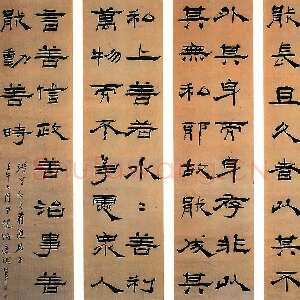 能長且久者以其不
外其身而身存非以
其無私耶故能成其
私上善若水〻善利
萬物而不爭處衆人
言善信政善治事善
能動善時